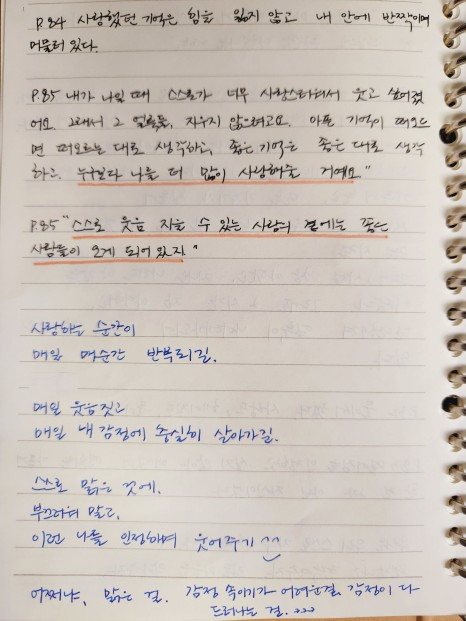 P.84 사랑했던 기억은 힘을 잃지 않고 내 안에 반짝이며
머물러 있다.
P.85 내가 나일 때 스스로가 너무 사랑스러워서 웃고 싶어졌
어요. 그래서 그 얼룩들, 지우지 않으려고요. 아픈 기억이 떠오르
면 떠오르는 대로 생각하고, 좋은 기억은 좋은 대로 생각
하고. 누구보다 나를 더 많이 사랑해줄 거예요"
P.85 "스스로 웃음 지을 수 있는 사람의 곁에는 좋은
사람들이 오게 되어 있지."
사랑하는 순간이
매일 매순간 반복되길.
매일 웃음짓고
매일 내 감정에 충실히 살아가길.
스스로 맑은 것에,
부끄러워 말고,
이런 나를 인정하며 웃어주기 ^^
어쩌냐, 맑은 걸. 감정 속이기가 어려운걸, 감정이 다
드러나는 걸.